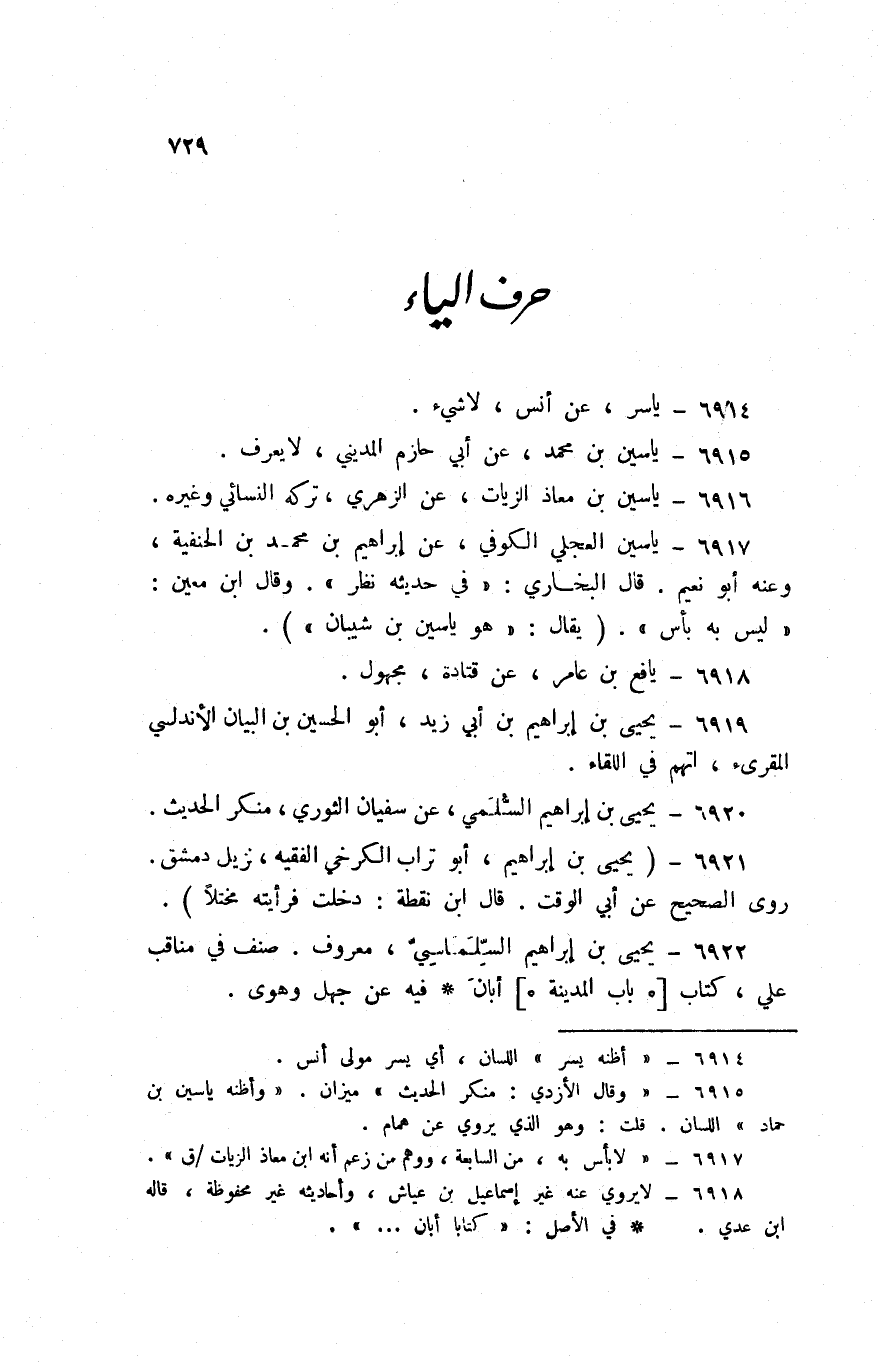 ٧٢٩
حرف الياء
٦٩١٤ – ياسر ، عن أنس ، لاشيء .
٦٩١٥ – ياسين بن محمد ، عن أبي حازم المديني ، لايعرف .
٦٩١٦ – ياسين بن معاذ الزيات ، عن الزهري ، تركه النسائي وغيره .
٦٩١٧ – ياسين العجلي الكوفي ، عن إبراهيم بن محمـد بن الحنفية ،
وعنه أبو نعيم . قال البخـاري : « في حديثه نظر » . وقال ابن معين :
« ليس به بأس » . ( يقال : « هو ياسين بن شيبان » ) .
٦٩١٨ – يافع بن عامر ، عن قتادة ، مجهول .
٦٩١٩ – يحيى بن إبراهيم بن أبي زيد ، أبو الحسين بن البيان الأندلسي
المقرىء ، اتهم في اللقاء .
٦٩٢٠ – يحيى بن إبراهيم السُّلَمي ، عن سفيان الثوري ، منكر الحديث .
٦٩٢١ – ( يحيى بن إبراهيم ، أبو تراب الكرخي الفقيه ، نزيل دمشق .
روى الصحيح عن أبي الوقت . قال ابن نقطة : دخلت فرأيته مختلاً ) .
٦٩٢٢ – يحيى بن إبراهيم السِّلَمَاسِيّ ، معروف . صنف في مناقب
علي ، كتاب [« باب المدينة »] أبانَ * فيه عن جهل وهوى .
٦٩١٤ – « أظنه يسر » اللسان ، أي يسر مولى أنس .
٦٩١٥ – « وقال الأزدي : منكر الحديث » ميزان . « وأظنه ياسين بن
حماد » اللسان . قلت : وهو الذي يروي عن همام .
٦٩١٧ – « لابأس به ، من السابعة ، ووهم من زعم أنه ابن معاذ الزيات /ق » .
٦٩١٨ – لايروي عنه غير إسماعيل بن عياش ، وأحاديثه غير محفوظة ، قاله
ابن عدي . * في الأصل : « كتابا أبان ... » .